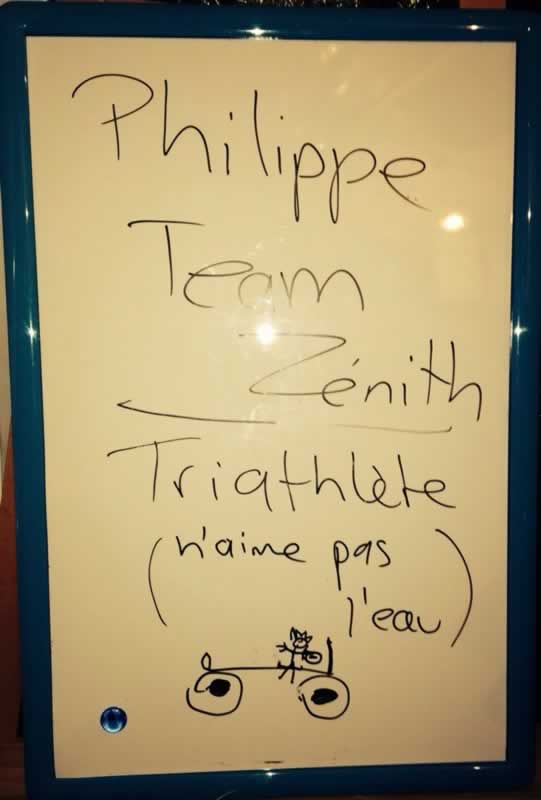 Philippe
Team
Zénith
Triathlète
(n'aime pas
l'eau)